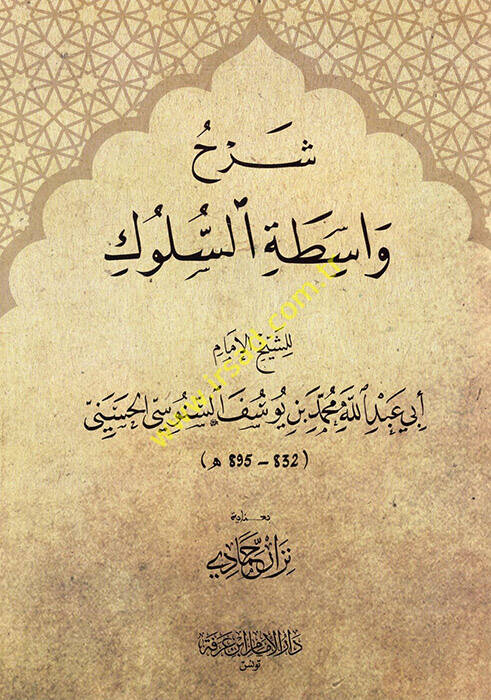 شَرْحُ
وَاسِطَةِ ٱلسُّلُوكِ
للشيخ الإمام
أبي عبد الله محمد بن يوسف السنوسي الحسني
(832 - 895 هـ)
بعناية
نزار حمادي
دار الإمام ابن عرفة
تونس
www.irsad.com.tr